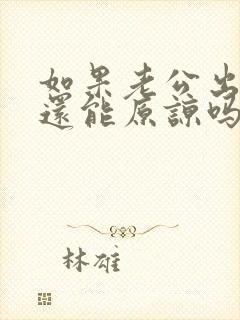 如果老公出
還能原諒嗎
林雄